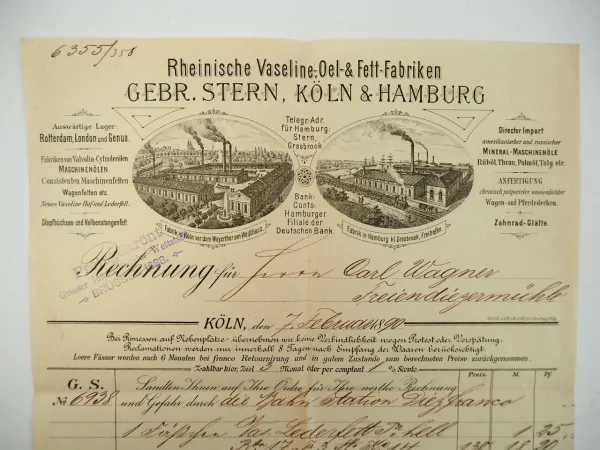 6355/358
Rheinische Vaseline-, Oel- & Fett-Fabriken
GEBR. STERN, KÖLN & HAMBURG
Auswärtige Lager:
Rotterdam, London und Genua.
Fabriken von Valvolin-Cylinderölen
MASCHINENÖLEN
Consistenten Maschinenfetten
Wagenfetten etc.
Neues Vaseline-Huf und Lederfett.
Stopfbüchsen- und Kolbenstangenfett.
Telegr.-Adr.
für Hamburg:
Stern,
Grasbrook.
Bank-
Conto:
Hamburger
Filiale der
Deutschen Bank.
Director Import
amerikanischer und russischer
MINERAL-MASCHINENÖLE
Rüböl, Thran, Palmöl, Talg etc.
ANFERTIGUNG
chemisch präparirter wasserdichter
Wagen- und Pferdedecken.
Zahnrad-Glätte.
Fabrik in Köln vor dem Weyerthor am Weghaus.
Fabrik in Hamburg kl. Grasbrook, Freihafen.
BRÜSSEL 1888.
Rechnung für Herrn Carl Wagner
Freiendiezermühle
KÖLN, den 7. Februar 1890
Bei Rimessen auf Nebenplätze übernehmen wir keine Verbindlichkeit wegen Protest oder Verspätung.
Reclamationen werden nur innerhalb 8 Tagen nach Empfang der Waaren berücksichtigt.
Leere Fässer werden nach 6 Monaten bei franco Retournirung und in gutem Zustande zum berechneten Preise zurückgenommen.
Zahlbar hier, Ziel 3 Monat oder per comptant 1 % Sconto.
Preis. M. Pf.
G. S. Sandten Ihnen auf Ihre Ordre für Ihre werthe Rechnung
No 6938 und Gefahr durch die Bahn Station Diez franco
1 Fäßchen Vas. Lederfett hell 1 25
Bto 17 14 130 18 20